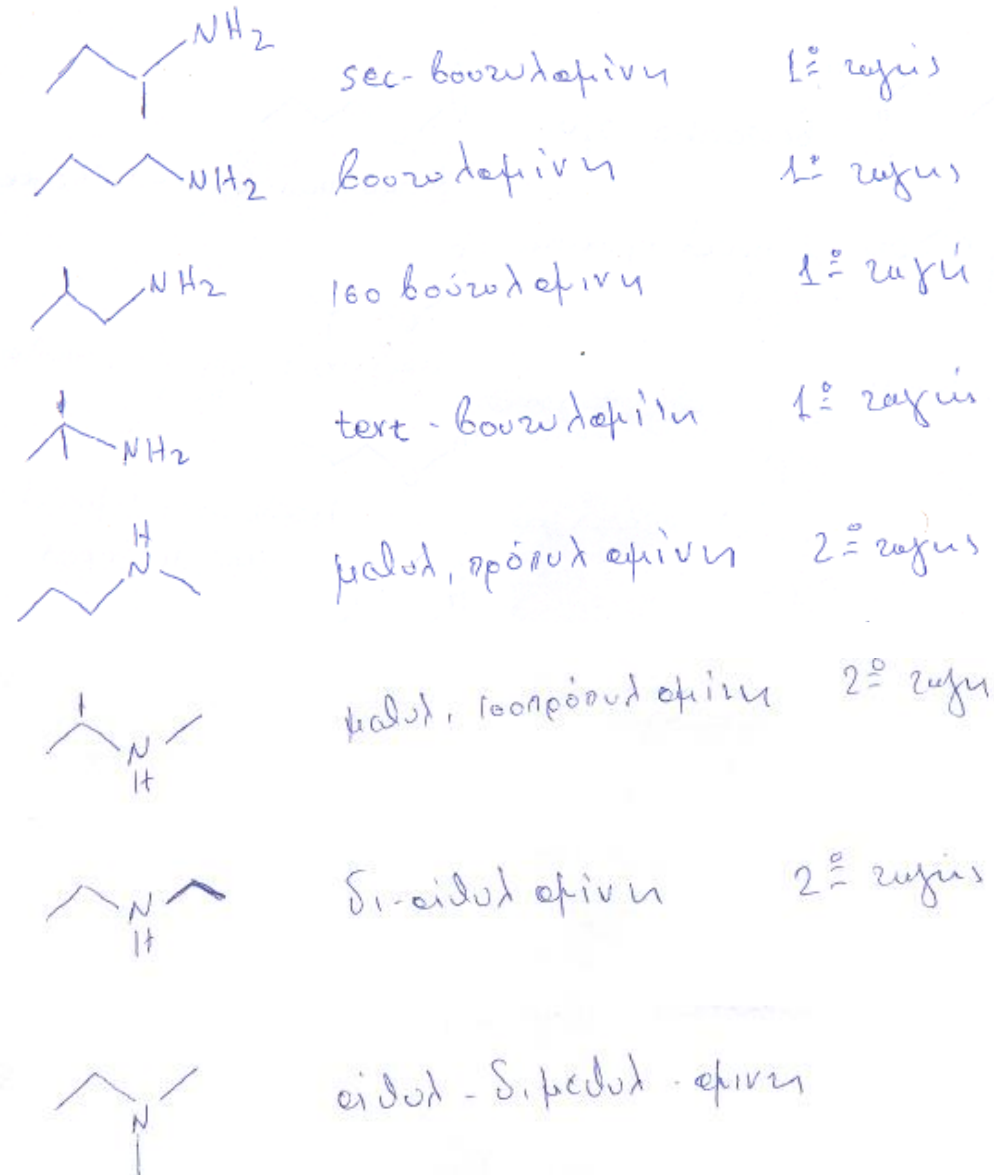 NH2 sec-βουτυλαμίνη 1º ταγής
NH2 βουτυλαμίνη 1º ταγης
NH2 ισο βούτυλαμινη 1º ταγή
NH2 tert-βουτυλαμίνη 1º ταγής
H
N μεθυλ, πρόπυλ αμίνη 2º ταγης
N μεθυλ, ισοπρόπυλ αμίνη 2º ταγη
H
N δι-αιθυλ αμίνη 2º ταγής
H
N αιθυλ-διμεθυλ-αμινη